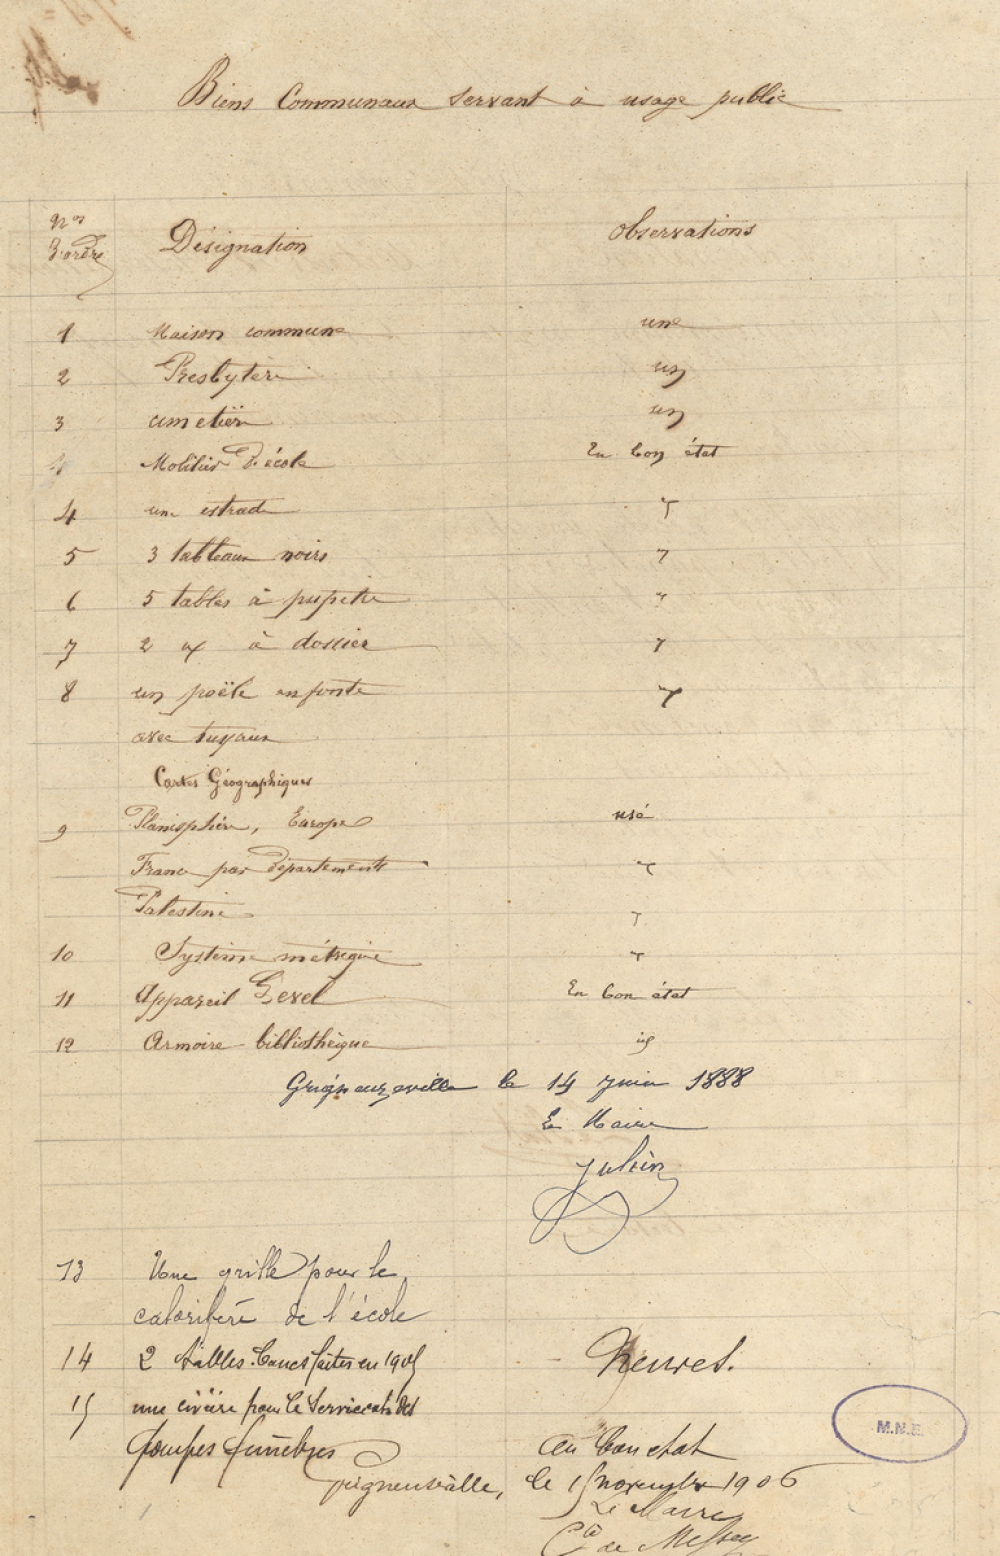 Biens Communaux servant à usage public
Nos d'ordre Désignation Observations
1 Maison commune une
2 Presbytère un
3 cimetière un
Mobilier d'école En bon état
4 une estrade "
5 3 tableaux noirs "
6 5 tables à pupitre "
7 2 " à dossier "
8 un poële en fonte "
avec tuyaux
Cartes Géographiques
9 Planisphère, Europe usé
France par départements "
Palestine "
10 Système métrique "
11 Appareil En bon état
12 Armoire bibliothèque
Grigneuzeville le 14 juin 1888
Le Maire
Julien
13 Une grille pour le
calorifère de l'école
14 2 tables-bancs faites en 1905 neuves.
15 une civière pour le service des
pompes funèbres en bon état
Grigneuseville, le 15 novembre 1906
Le Maire
Cte de Messey
M.N.E.